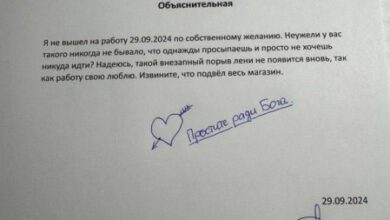 Объяснительная
Я не вышел на работу 29.09.2024 по собственному желанию. Неужели у вас
такого никогда не бывало, что однажды просыпаешь и просто не хочешь
никуда идти? Надеюсь, такой внезапный порыв лени не появится вновь, так
как работу свою люблю. Извините, что подвёл весь магазин.
Простите ради Бога.
29.09.2024